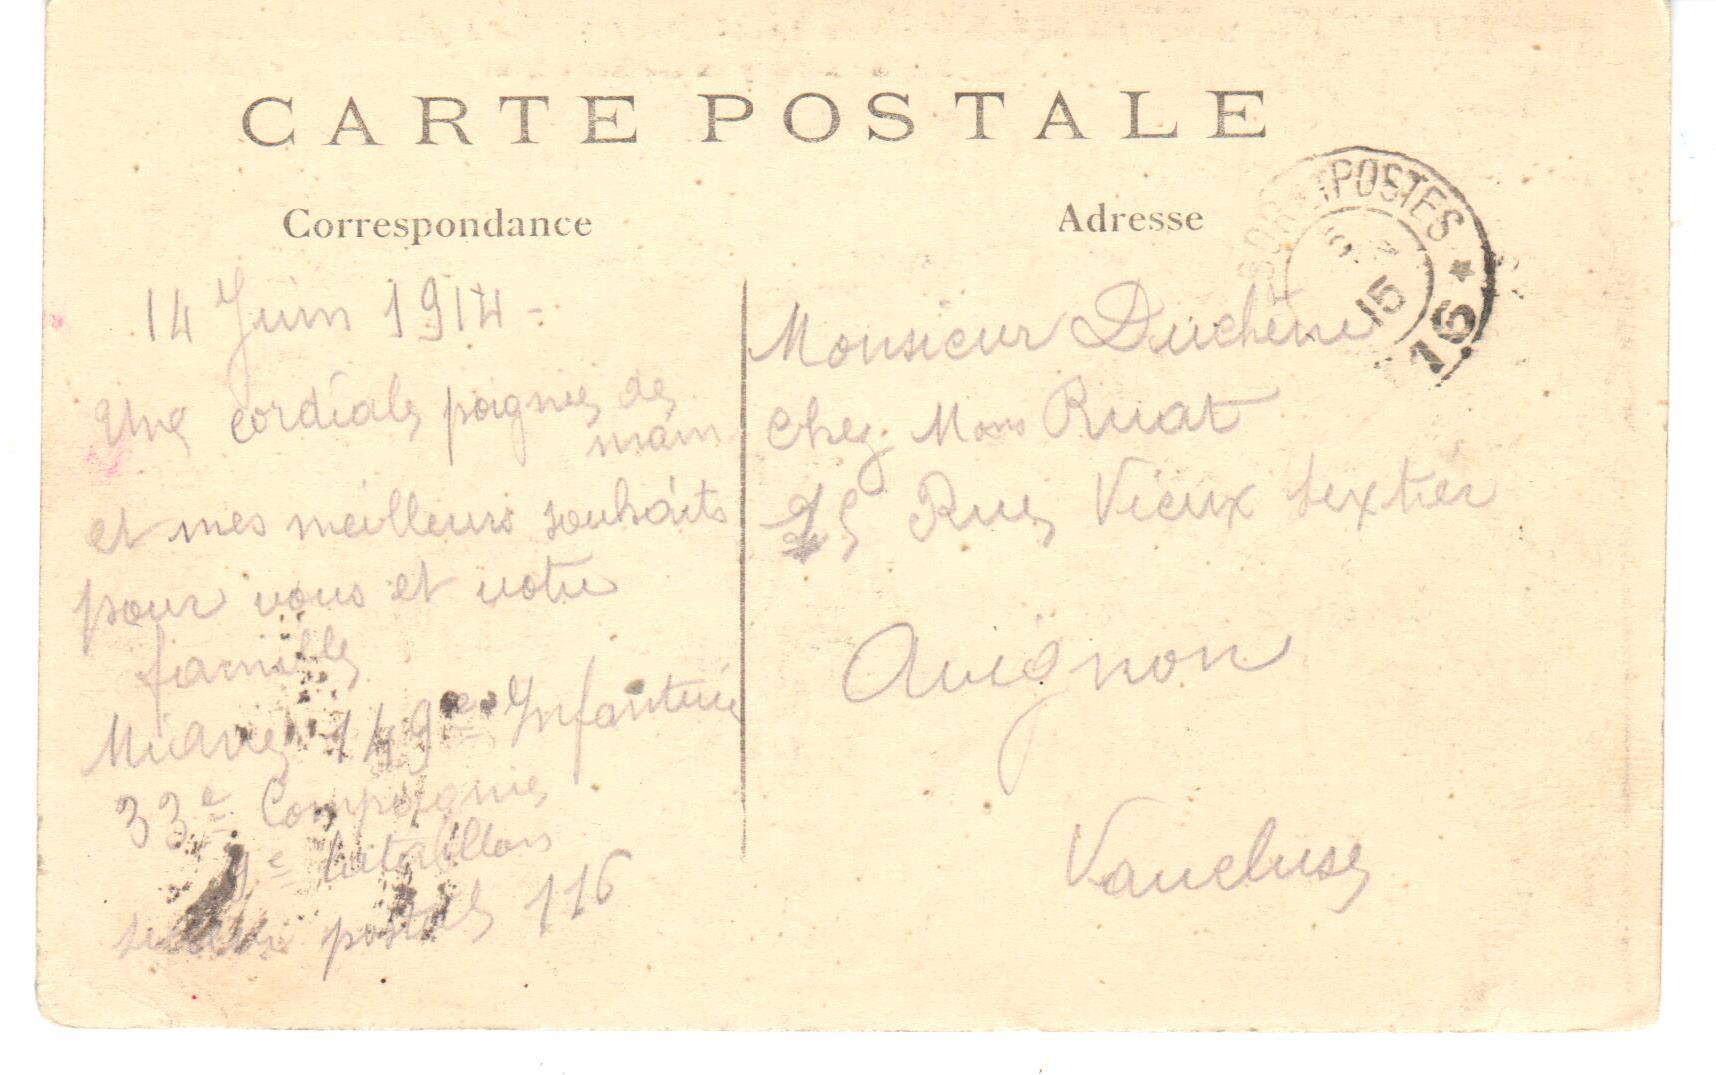 CARTE POSTALE
Correspondance
14 Juin 1914 -
Une cordiale poignée de
main
et mes meilleurs souhaits
pour vous et votre
famille
149e Infanterie
33e Compagnie
9e bataillon
secteur postal 116
Adresse
Monsieur Duchene
chez Mons Ruat
25 Rue Vieux Sextier
Avignon
Vaucluse
POSTES
15
116